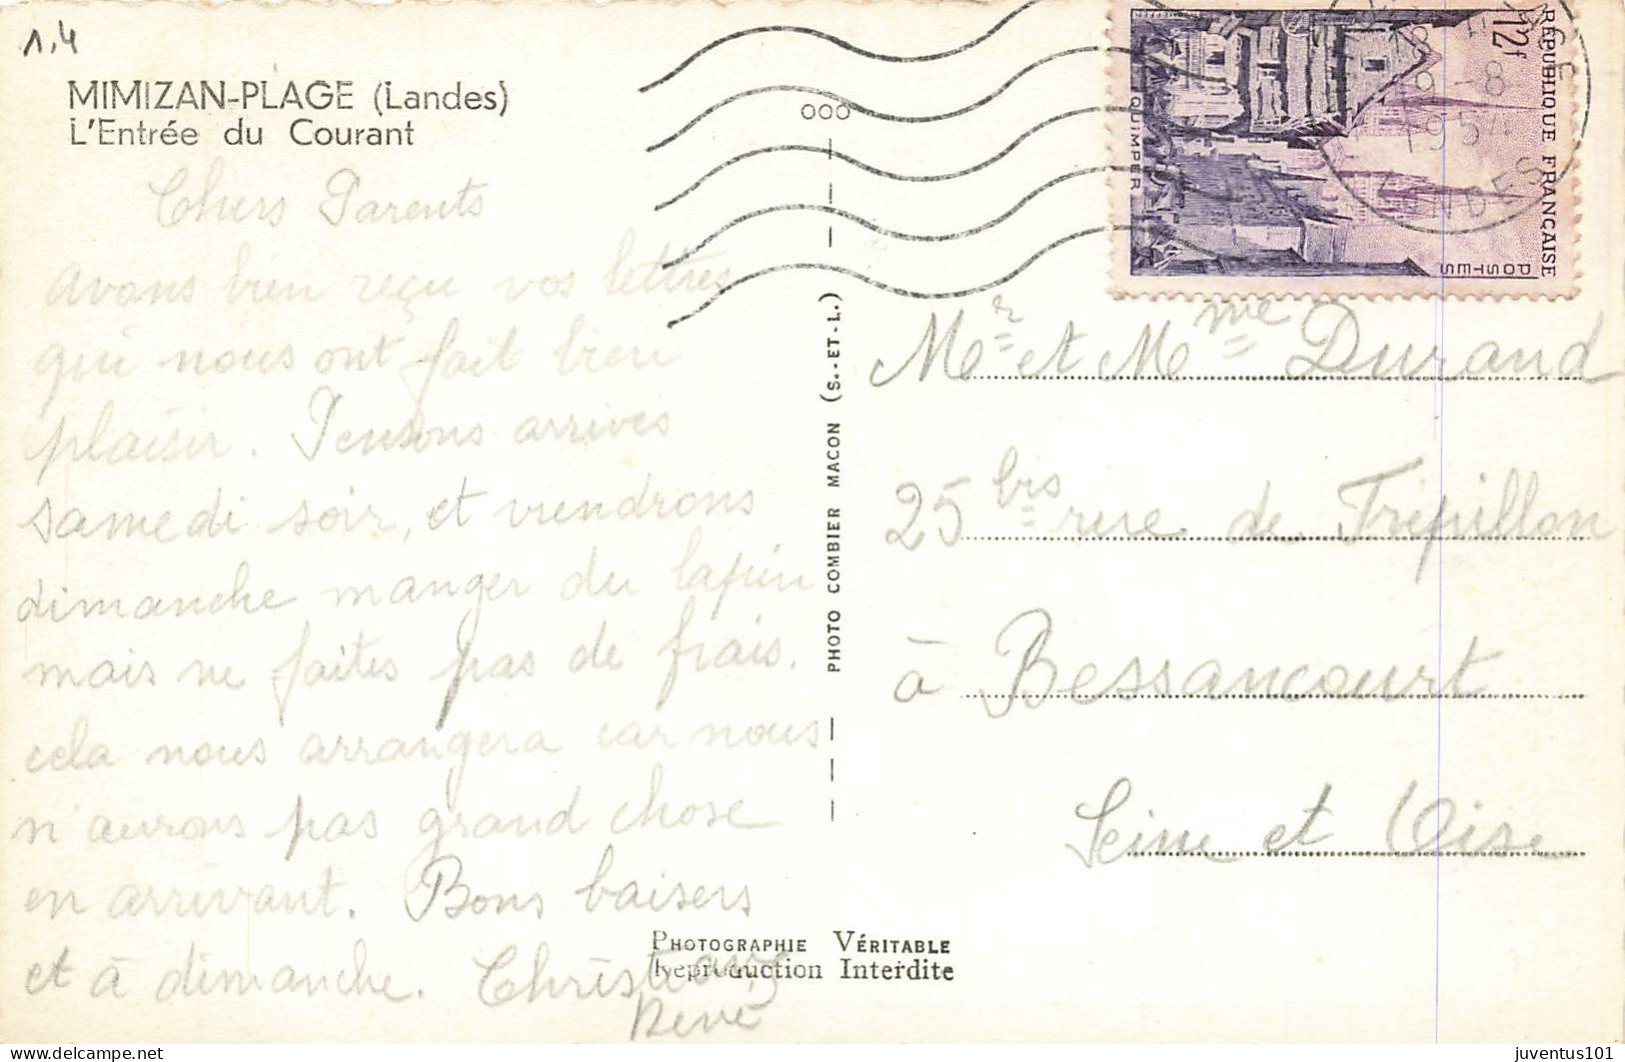 1.4
MIMIZAN-PLAGE (Landes)
L'Entrée du Courant
Chers Parents
avons bien reçu vos lettres
qui nous ont fait bien
plaisir. Pensons arrivés
samedi soir, et viendrons
dimanche manger du lapin
mais ne faites pas de frais.
cela nous arrangera car nous
n'aurons pas grand chose
en arrivant. Bons baisers
et à dimanche. Christiane
René
PHOTO COMBIER MACON (S.-ET-L.)
000
RÉPUBLIQUE FRANÇAISE
12f
POSTES
QUIMPER
-8
1954
Mr et Mme Durand
25 bis rue de Trepillon
à Bessancourt
Seine et Oise
PHOTOGRAPHIE VÉRITABLE
Reproduction Interdite
delcampe.net
juventus101